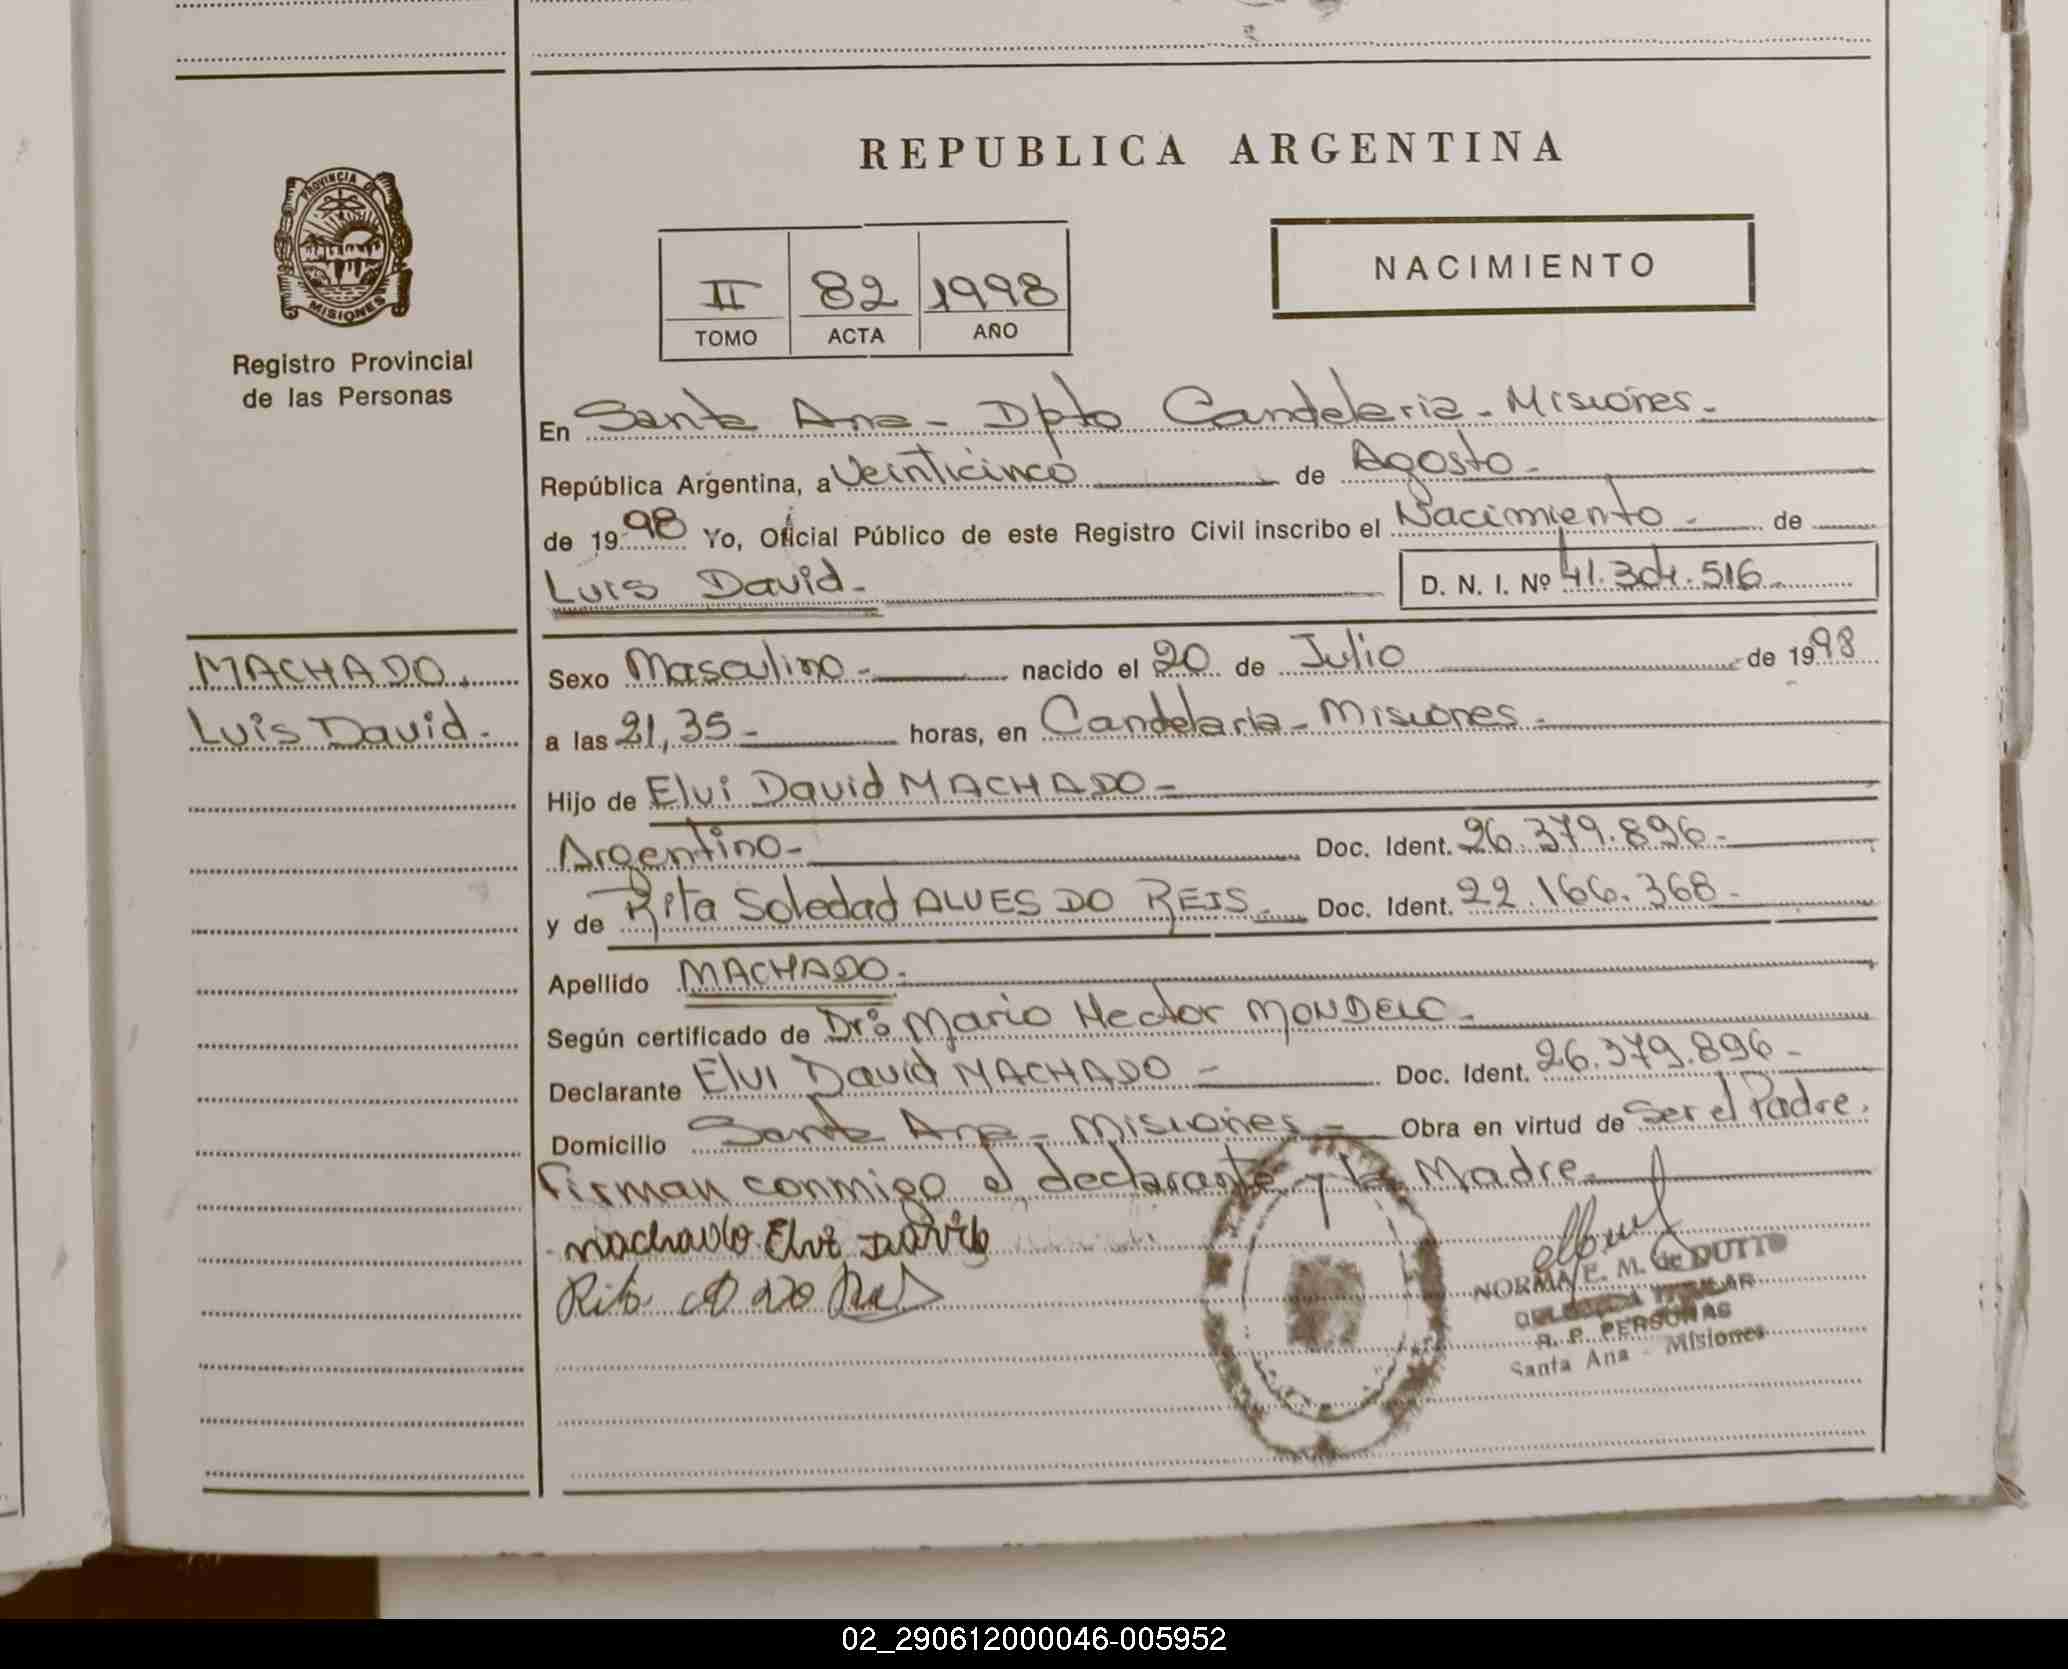 REPUBLICA ARGENTINA
PROVINCIA DE
MISIONES
Registro Provincial
de las Personas
II 82 1998
TOMO ACTA AÑO
NACIMIENTO
En Santa Ana - Dpto Candelaria - Misiones -
República Argentina, a Veinticinco de Agosto -
de 1998 Yo, Oficial Público de este Registro Civil inscribo el Nacimiento - de
Luis David - D. N. I. Nº 41.304.516 -
MACHADO,
Luis David -
Sexo Masculino - nacido el 20 de Julio de 1998
a las 21,35 - horas, en Candelaria - Misiones -
Hijo de Elvi David MACHADO -
Argentino - Doc. Ident. 26.379.896 -
y de Rita Soledad ALVES DO REIS - Doc. Ident. 22.166.368 -
Apellido MACHADO -
Según certificado de Dr: Mario Hector MONDELO -
Declarante Elvi David MACHADO - Doc. Ident. 26.379.896 -
Domicilio Santa Ana - Misiones - Obra en virtud de Ser el Padre.
Firman conmigo el declarante y la Madre -
machado Elvi David
Rita
NORMA E. M. de DUTTO
DELEGADA TITULAR
R. P. PERSONAS
Santa Ana - Misiones
02_290612000046-005952